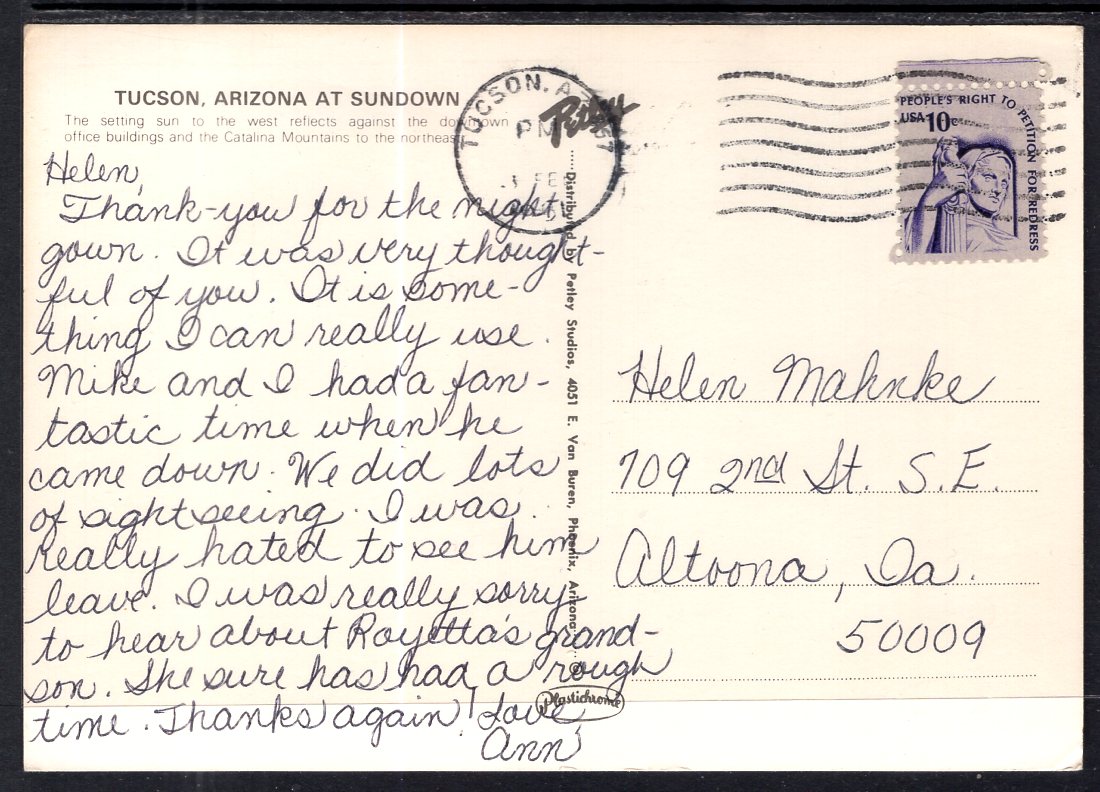 TUCSON, ARIZONA AT SUNDOWN
The setting sun to the west reflects against the downtown
office buildings and the Catalina Mountains to the northeast.
Helen,
Thank-you for the night
gown. It was very thought-
ful of you. It is some-
thing I can really use.
Mike and I had a fan-
tastic time when he
came down. We did lots
of sightseeing. I was
really hated to see him
leave. I was really sorry
to hear about Royetta's grand-
son. She sure has had a rough
time. Thanks again! Love,
Ann
TUCSON, A
PM
FE
Petley
Distributed by Petley Studios, 4051 E. Van Buren, Phoenix, Arizona
Plastichrome
PEOPLE'S RIGHT TO PETITION FOR REDRESS
USA 10c
Helen Mahnke
709 2nd St. S.E.
Altoona, Ia.
50009